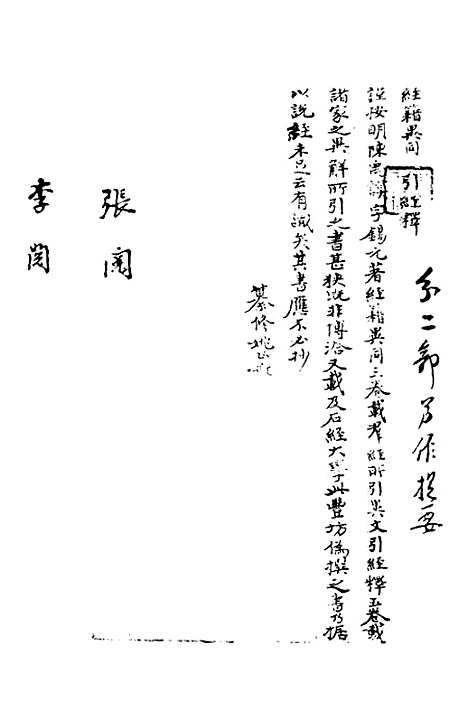 分二部另作提要
經籍異同
引經釋
謹按明陳禹謨字錫元著經籍異同三卷載羣經所引異文引經釋五卷載
諸家之異解所引之書甚狹既非博洽又載及石經大學此豐坊偽撰之書乃据
以說經未足云有識矣其書應不必抄
纂修姚
張閱
李閱